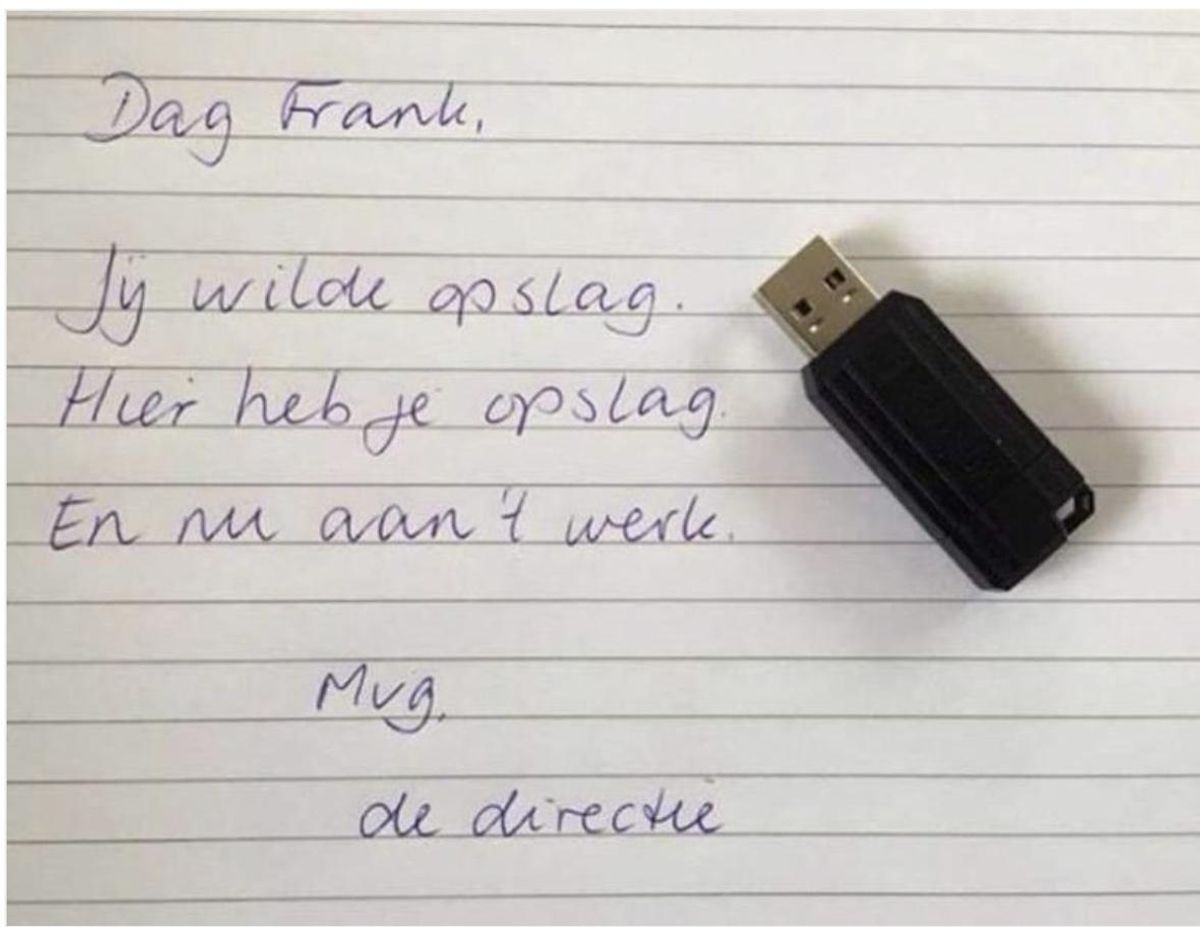 Dag Frank,
Jij wilde opslag.
Hier heb je opslag.
En nu aan 't werk.
Mvg,
de directie